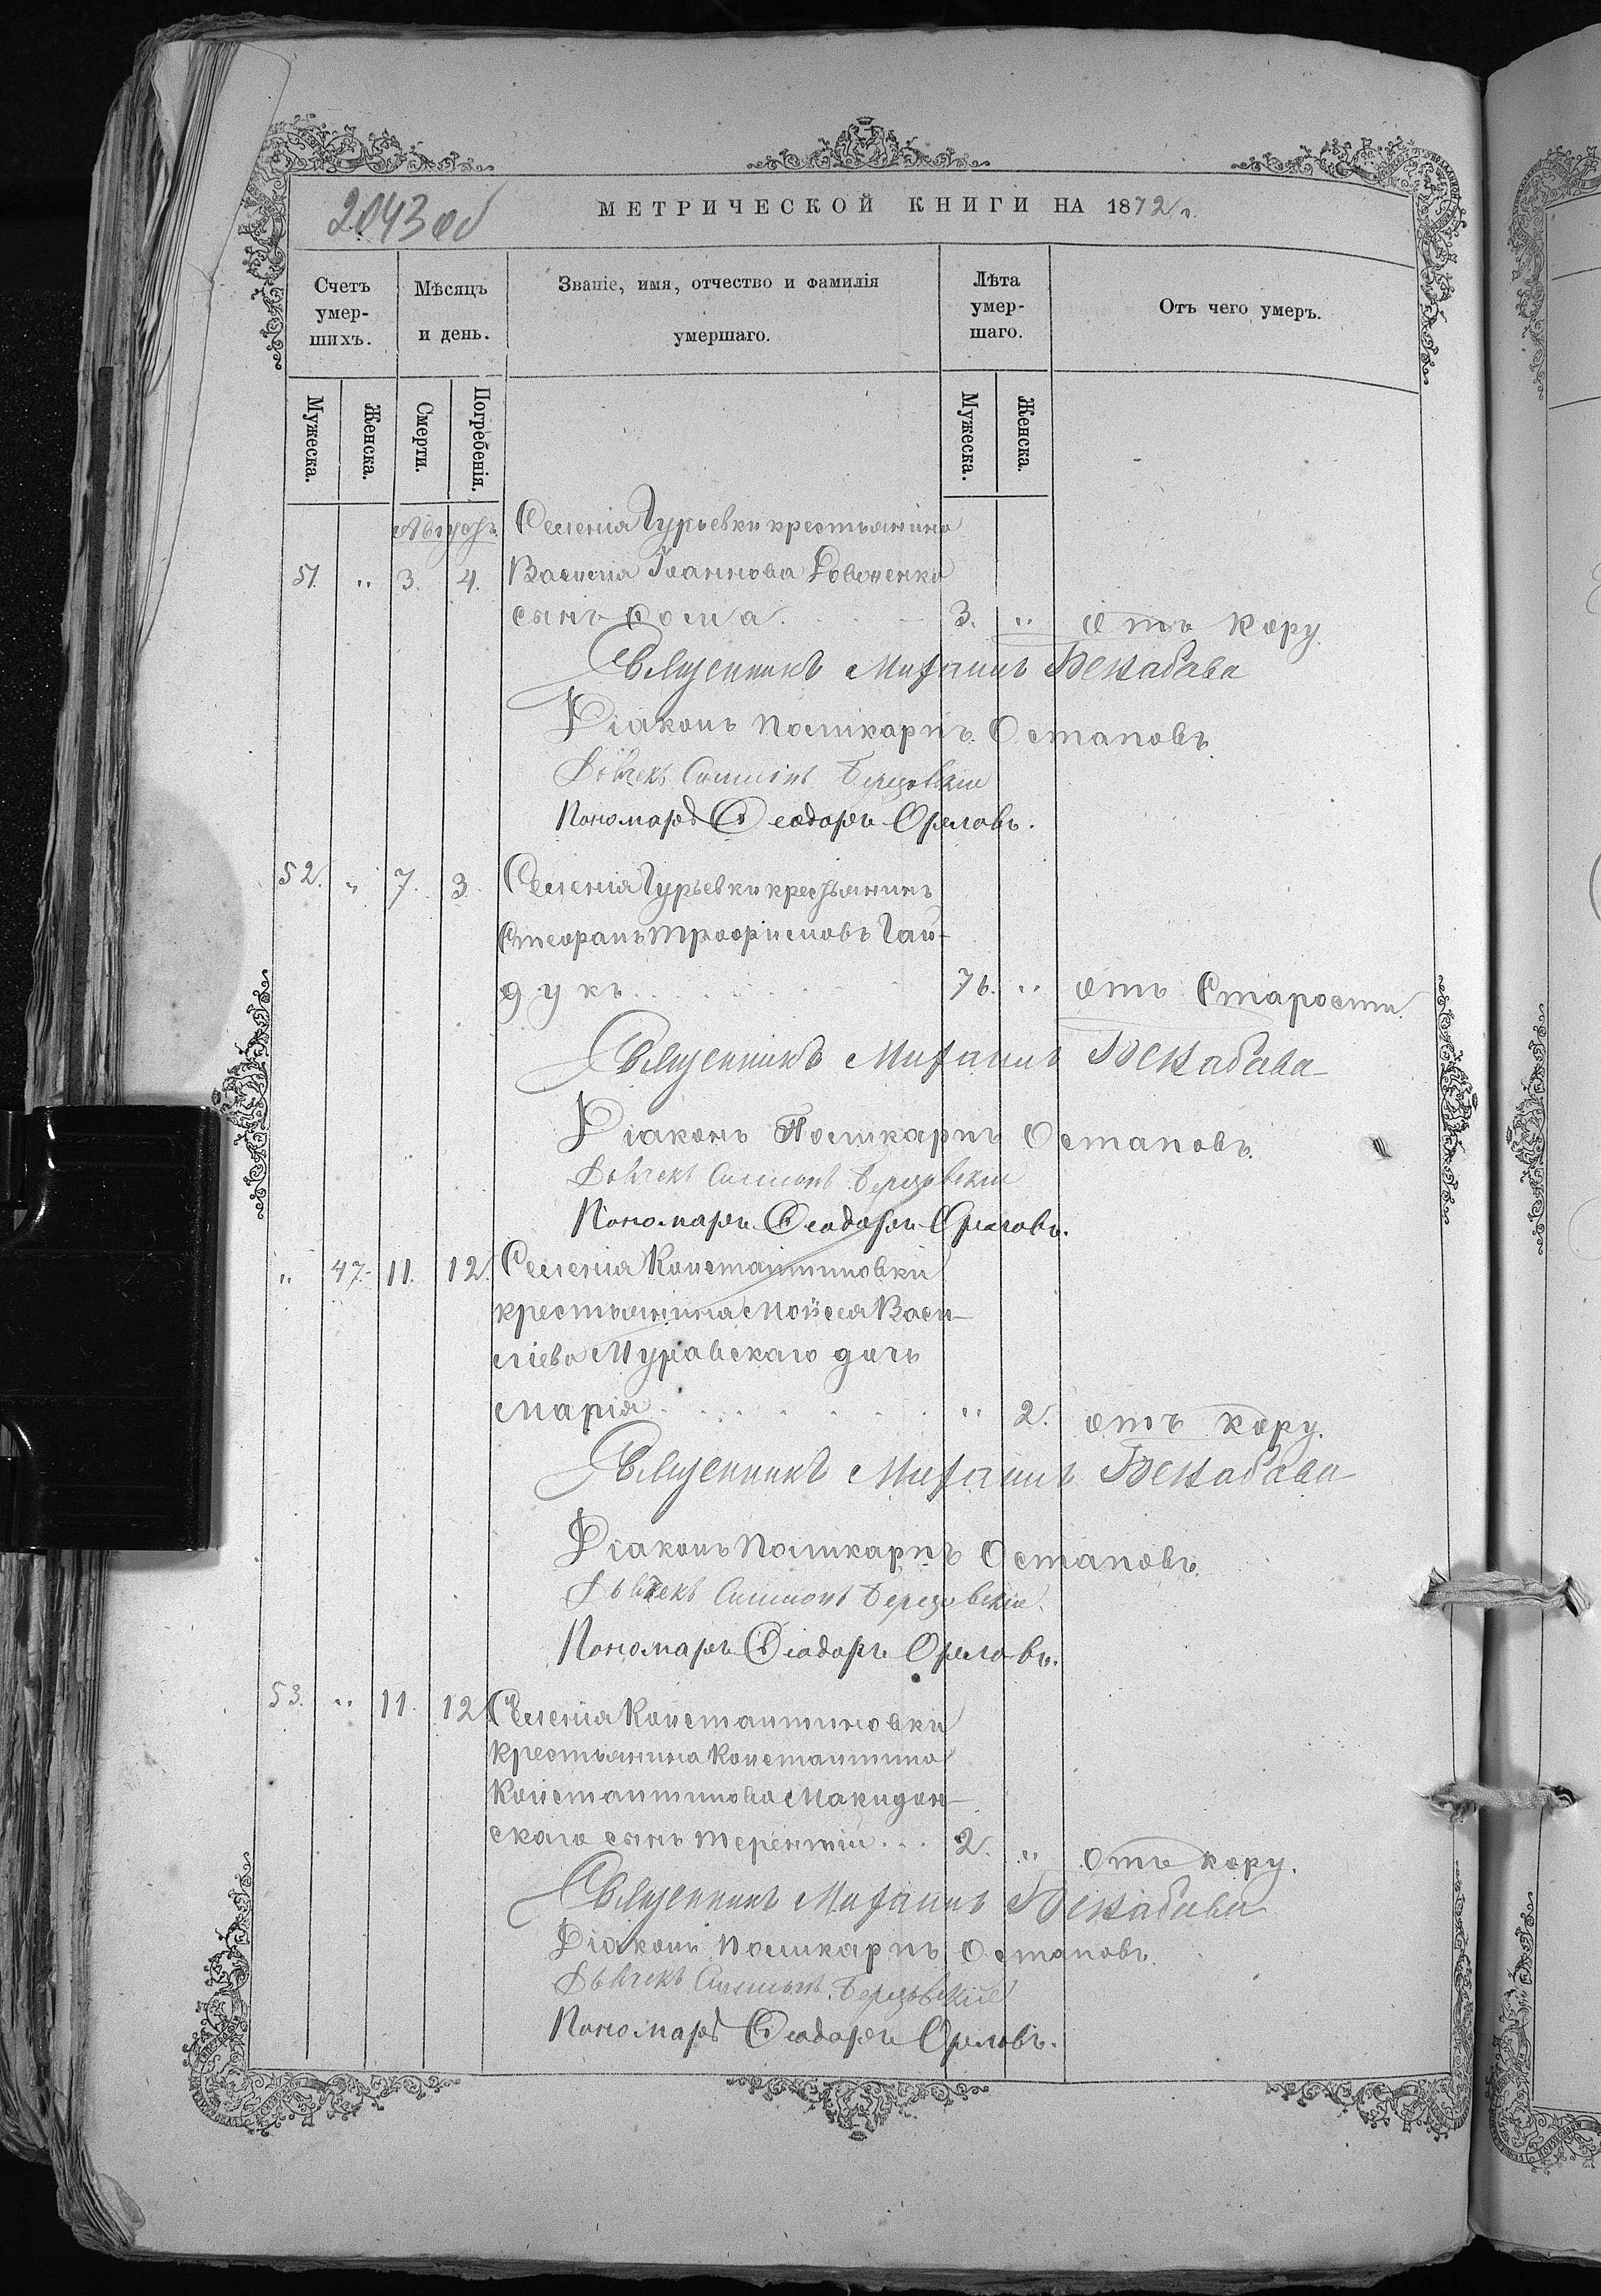 2043 об
МЕТРИЧЕСКОЙ КНИГИ НА 1872 г.
Счетъ умер-шихъ.
Мѣсяцъ и день.
Званіе, имя, отчество и фамилія умершаго.
Лѣта умер-шаго.
Отъ чего умеръ.
Мужеска. Женска. Смерти. Погребенія. Мужеска. Женска.
Августъ. Селенія Гурьевки крестьянина
51. " 3. 4. Василія Іоаннова
сынъ Ѳома. 3. " отъ кору.
Священникъ Михаилъ
Діаконъ Поликарпъ Остаповъ.
Дьячекъ Симеонъ Березовскій
Пономарь Ѳеодоръ Орловъ.
52. " 7. 3. Селенія Гурьевки крестьянинъ
Стефанъ Трофимовъ Гай-
дукъ. 76. " отъ Старости.
Священникъ Михаилъ
Діаконъ Поликарпъ Остаповъ.
Дьячекъ Симеонъ Березовскій
Пономарь Ѳеодоръ Орловъ.
" 47. 11. 12. Селенія Константиновки
крестьянина Мойсея Васи-
лиева Муравскаго дочь
Марія " 2. отъ кору.
Священникъ Михаилъ
Діаконъ Поликарпъ Остаповъ.
Дьячекъ Симеонъ Березовскій.
Пономарь Ѳеодоръ Орловъ.
53. " 11. 12. Селенія Константиновки
крестьянина Константина
Константинова Македон-
скаго сынъ Терентій... 2. " Отъ кору.
Священникъ Михаилъ
Діаконъ Поликарпъ Остаповъ.
Дьячекъ Симеонъ Березовскій
Пономарь Ѳеодоръ Орловъ.